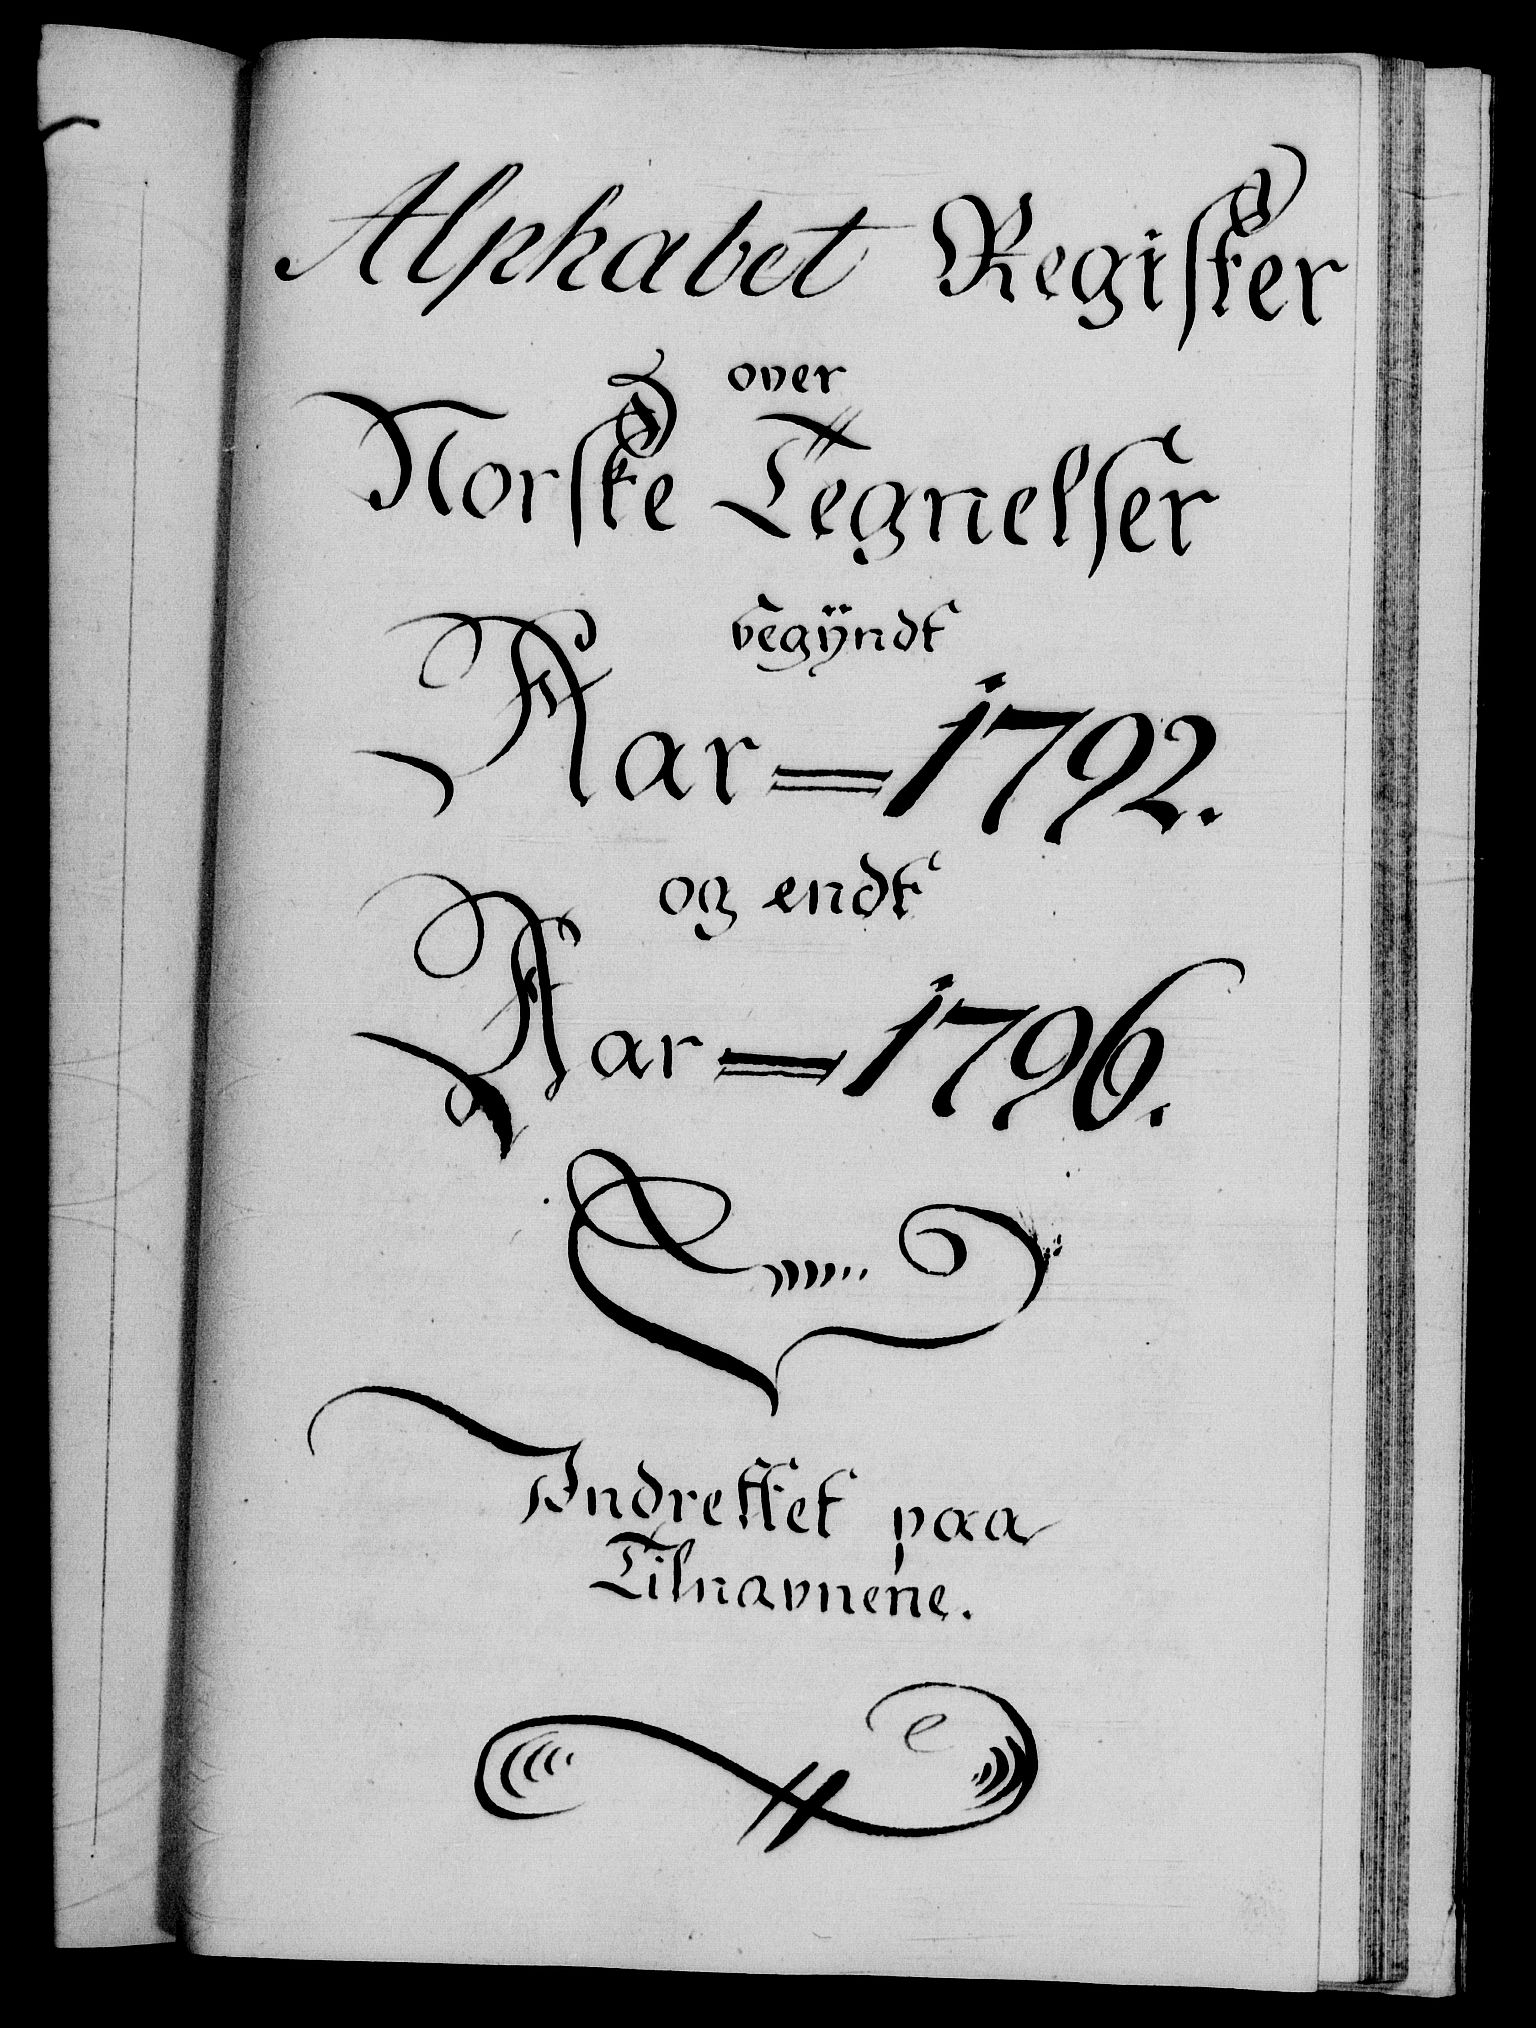 Alphabet Register
over
Norske Tegnelser
begÿndt
Aar = 1792.
og endt
Aar = 1796.
Indrettet paa
Tilnavnene.